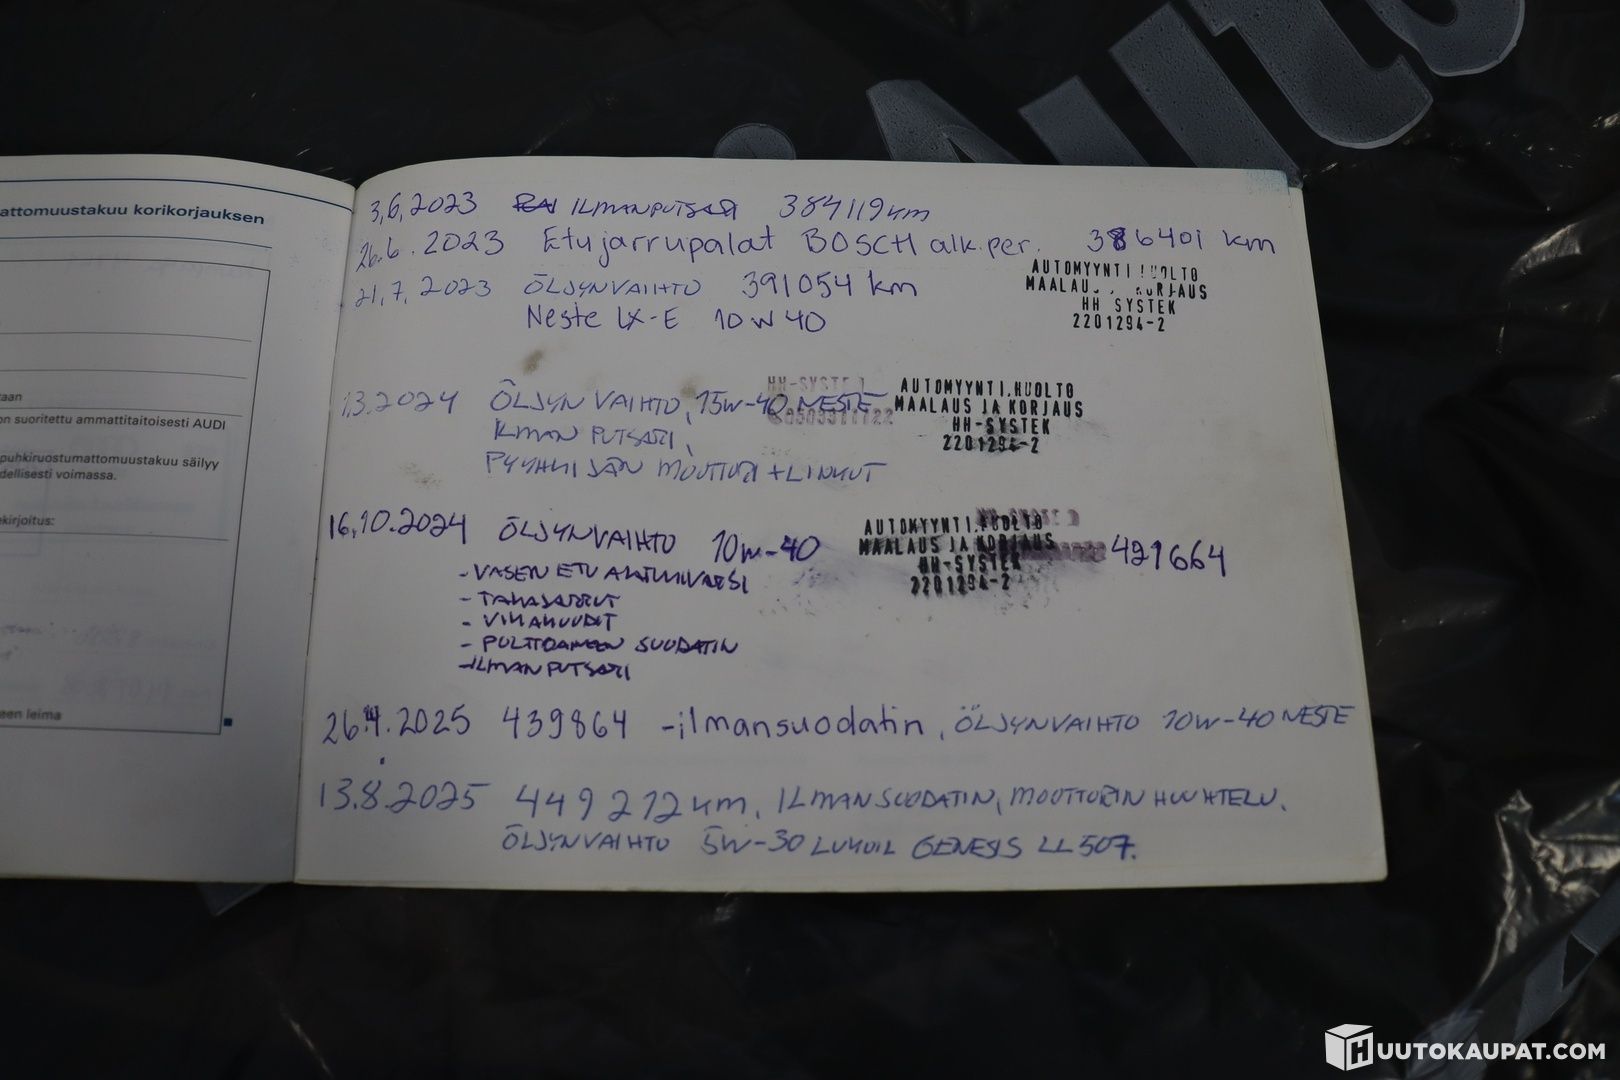 Auto
attomuustakuu korikorjauksen
taan
on suoritettu ammattitaitoisesti AUDI
puhkiruostumattomuustakuu säilyy
dellisesti voimassa.
ekirjoitus:
een leima
3,6,2023 ILMANPUTSARI 384119 km
26.6.2023 Etujarrupalat BOSCH alk.per. 386401 km
AUTOMYYNTI.HUOLTO
MAALAUS JA KORJAUS
HH SYSTEK
2201294-2
21,7,2023 ÖLJYNVAIHTO 391054 km
Neste LX-E 10W40
1.3.2024 ÖLJYNVAIHTO, 15W-40 NESTE
HH-SYSTE
AUTOMYYNTI.HUOLTO
MAALAUS JA KORJAUS
HH-SYSTEK
2201294-2
ILMAN PUTSARI,
PYYHKIJÄN MOOTTORI + LINKUT
16.10.2024 ÖLJYNVAIHTO 10W-40
AUTOMYYNTI.HUOLTO
MAALAUS JA KORJAUS
HH-SYSTEK
2201294-2
421664
- VASEN ETU ALATUKIVARSI
- TAKAJARRUT
- POLTTOAINEEN SUODATIN
- ILMANPUTSARI
26.4.2025 439864 -ilmansuodatin, ÖLJYNVAIHTO 10W-40 NESTE
13.8.2025 449272 km, ILMANSUODATIN, MOOTTORIN HUUHTELU.
ÖLJYNVAIHTO 5W-30 LUKOIL GENESIS LL 507.
HUUTOKAUPAT.COM